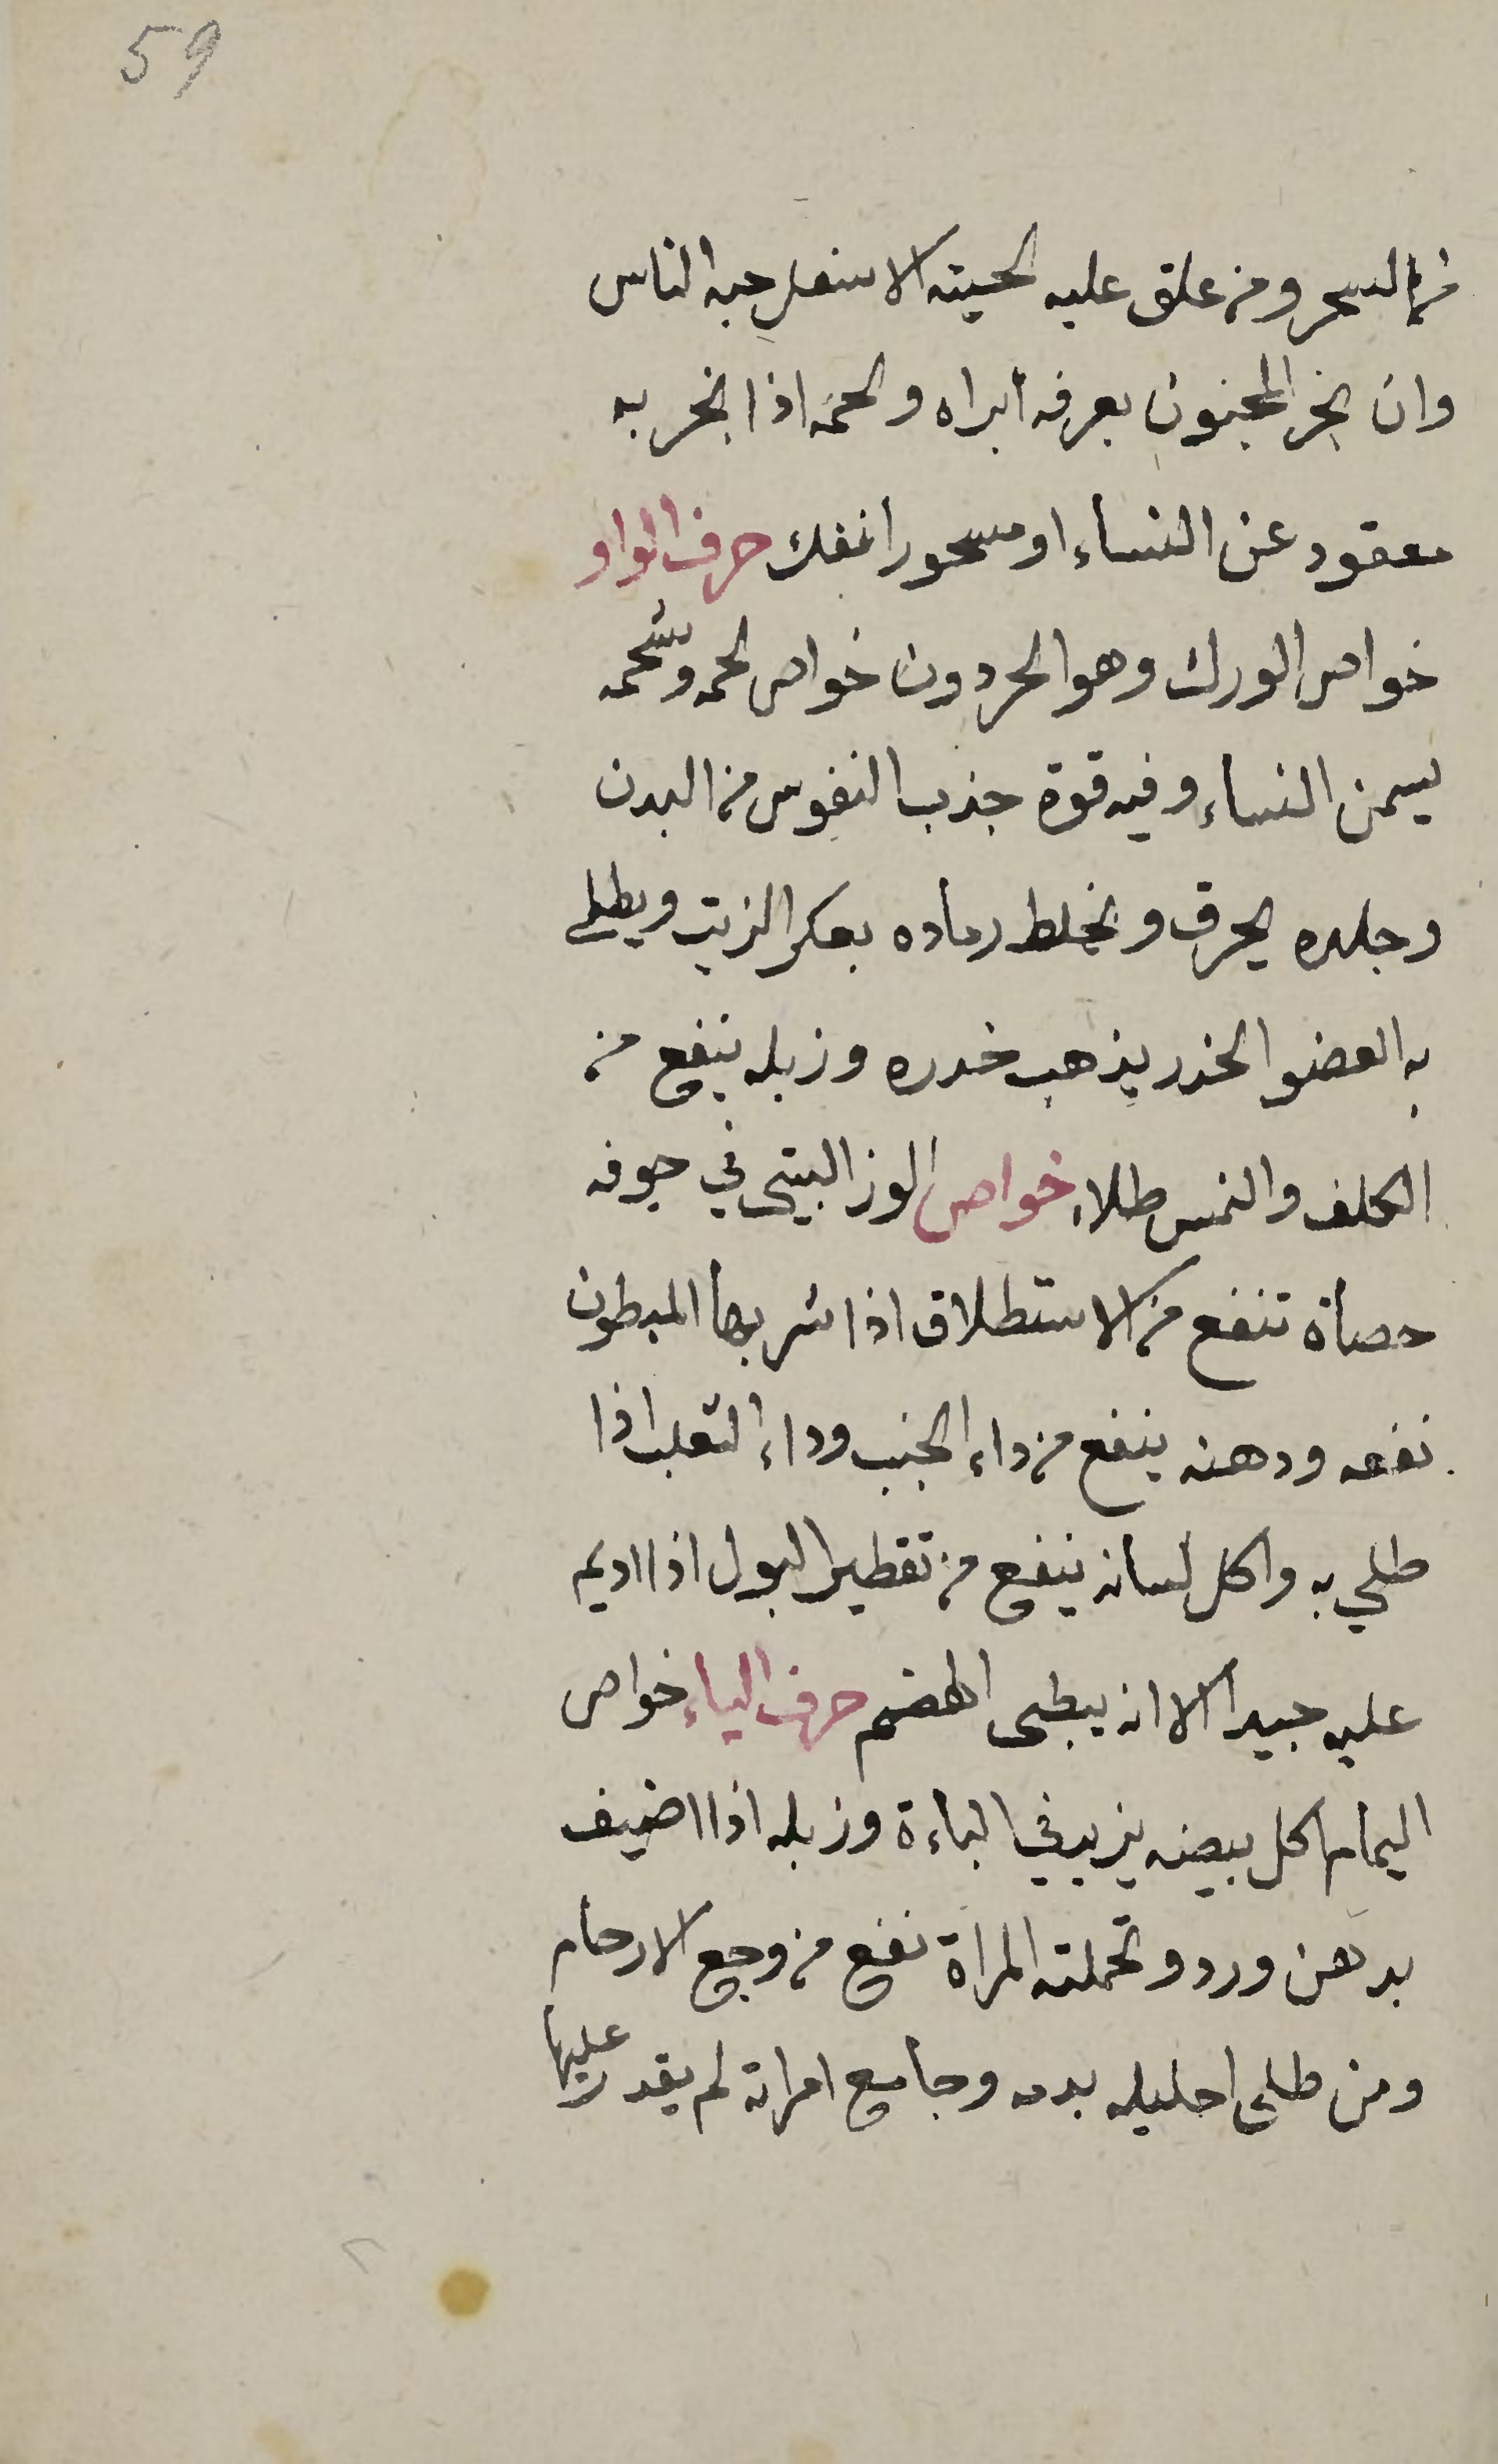 59
من السحر ومن علق عليه لحيته الاسفل حبه الناس
وان بخر المجنون بعرفه ابراه ولحمه اذا بخر به
معقود عن النساء او مسحور انفك حرف الواو
خواص الورك وهو الحردون خواص لحمه وشحمه
يسمن النساء وفيه قوة جذب النفوس من البدن
وجلده يحرق ويخلط رماده بعكر الزيت ويطلى
به العضو الخدر يذهب خدره وزبله ينفع من
الكلف والنمس طلاء خواص الوز البيتي في جوفه
حصاة تنفع من الاستطلاق اذا شربها المبطون
نفعه ودهنه ينفع من داء الجنب وداء الثعلب اذا
طلي به واكل لسانه ينفع من تقطير البول اذا اديم
عليه جيدا الا انه يبطى الهضم حرف الياء خواص
اليمام اكل بيضه يزيد في الباءة وزبله اذا اضيف
بدهن ورد وتحملته المراة نفع من وجع الارحام
ومن طلى احليله بدمه وجامع امراته لم يقدر عليها